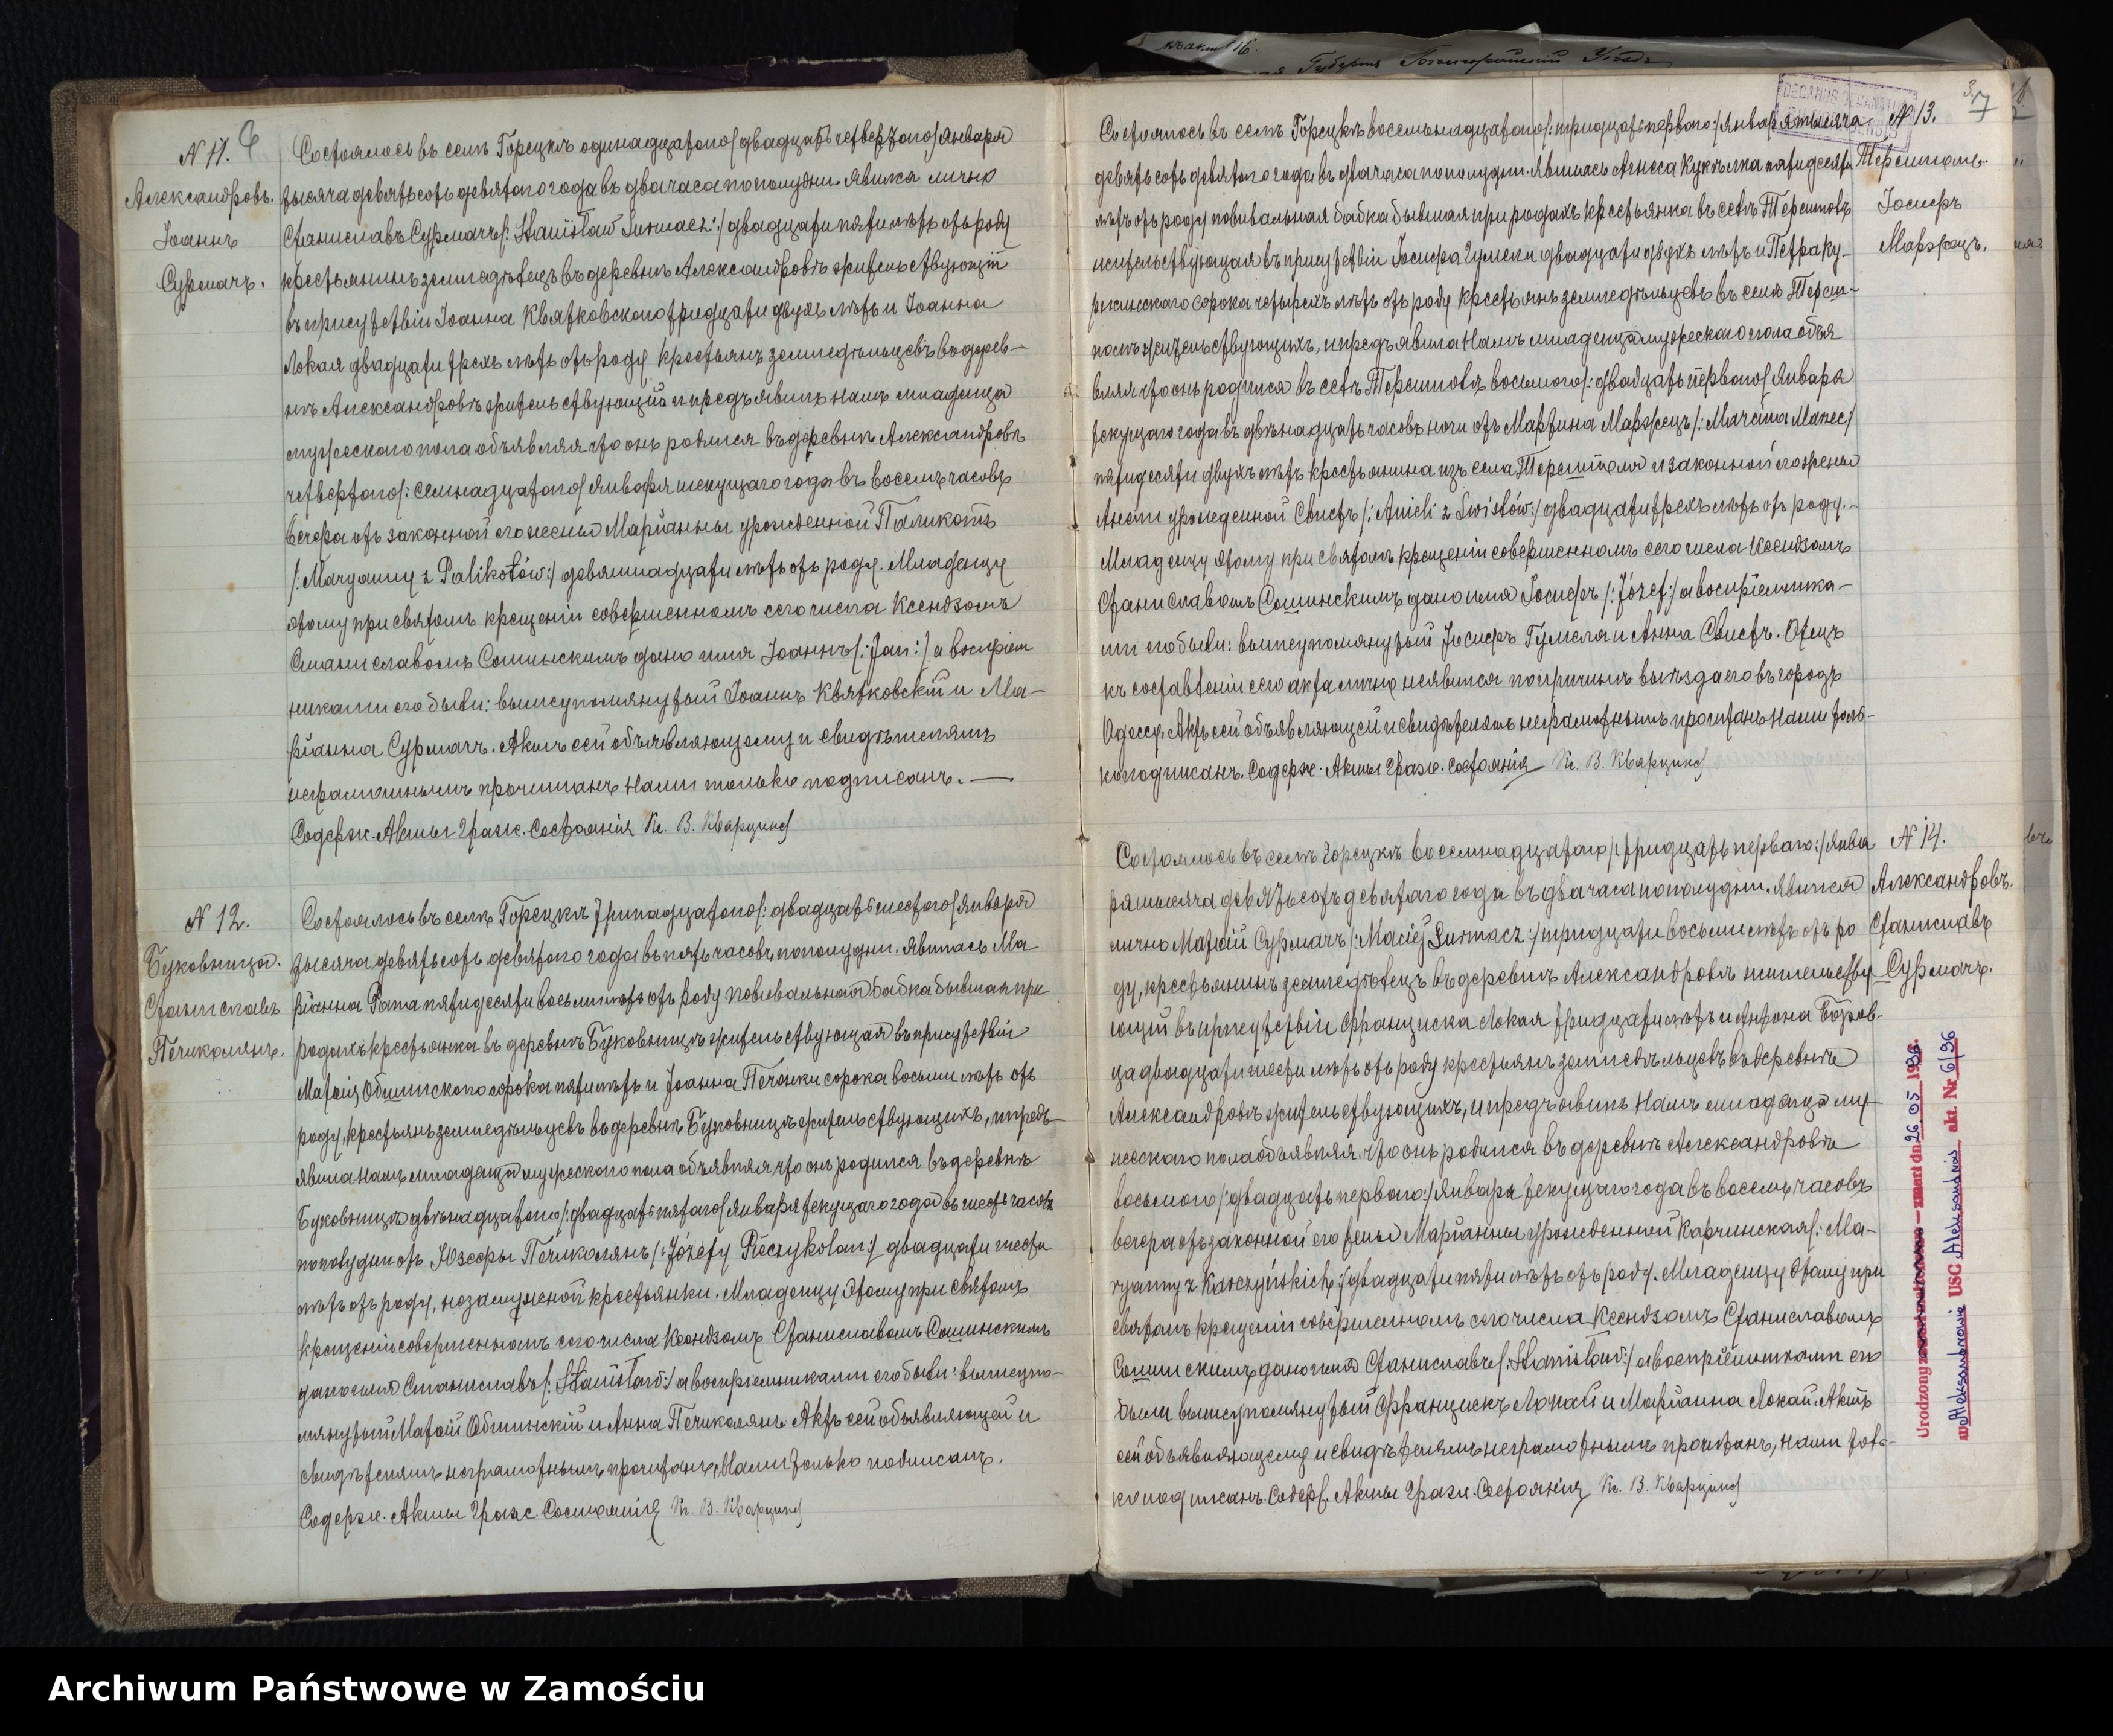 къ акту 16.
Губернія Бѣлгорайскій Уѣздъ
N 11.
Александровъ.
Іоаннъ
Сурмачъ.
Состоялось въ селѣ Горецкѣ одинадцатого/двадцать четвертого/Января
тысяча девятьсотъ девятого года въ два часа пополудни. Явился лично
Станиславъ Сурмачъ/: Stanisław Surmacz:/ двадцати пяти лѣтъ отъ роду
крестьянинъ земледѣлецъ въ деревнѣ Александровѣ жительствующій
въ присутствіи Іоанна Квятковского тридцати двухъ лѣтъ и Іоанна
Локая двадцати трехъ лѣтъ отъ роду крестьянъ земледѣльцевъ въ дерев-
нѣ Александровѣ жительствующій и предъявилъ Намъ младенца
мужеского пола объявляя что онъ родился въ деревнѣ Александровѣ
четвертого/: семнадцатого/ Января текущаго года въ восемь часовъ
вечера отъ законной его жены Маріанны урожденной Паликотъ
/: Maryanny z Palikotów:/ девятнадцати лѣтъ отъ роду. Младенцу
этому при святомъ крещеніи совершенномъ сего числа Ксендзомъ
Станиславомъ Сошинскимъ дано имя Іоаннъ/: Jan:/ а воспріем
никами его были: вышеупомянутый Іоаннъ Квятковскій и Ма-
ріанна Сурмачъ. Актъ сей объявляющему и свидѣтелямъ
неграмотнымъ прочитанъ Нами только подписанъ. —
Содерж. Акты Граж. Состоянія Кс. В. Кварцинс
N 12.
Буковница.
Станиславъ
Печиколянъ.
Состоялось въ селѣ Горецкѣ тринадцатого/: двадцать шестого/Января
тысяча девятьсотъ девятого года въ пять часовъ пополудни. Явилась Ма
ріанна Рапа пятидесяти восьми лѣтъ отъ роду повивальная бабка бывшая при
родахъ крестьянка въ деревнѣ Буковницѣ жительствующая въ присутствіи
Матѳія Обшинского сорока пяти лѣтъ и Іоанна Печонки сорока восьми лѣтъ отъ
роду, крестьянъ земледѣльцевъ въ деревнѣ Буковницѣ жительствующихъ, и предъ-
явила Намъ младенца мужеского пола объявляя что онъ родился въ деревнѣ
Буковницѣ двѣнадцатого/: двадцать пятого/Января текущаго года въ шесть часовъ
пополудни отъ Юзефы Печиколянъ/: Józefy Pieczykolan:/ двадцати шести
лѣтъ отъ роду, незамужней крестьянки. Младенцу Этому при Святомъ
крещеніи совершенномъ сего числа Ксендзомъ Станиславомъ Сошинскимъ
дано имя Станиславъ/: Stanisław:/ а воспріемниками его были: вышеупо-
мянутый Матѳій Обшинскій и Анна Печиколянъ Актъ сей объявляющей и
свидѣтелямъ неграмотнымъ прочитанъ, Нами только подписанъ.
Содерж. Акты Граж. Состоянія Кс. В. Кварцинс
Состоялось въ селѣ Горецкѣ восемьнадцатого/: тридцать первого:/Января тысяча
девятьсотъ девятого года въ два часа пополудни. Явилась Агнеса Кукѣлка пятидесяти
лѣтъ отъ роду повивальная бабка бывшая при родахъ крестьянка въ селѣ Терешполѣ
жительствующая въ присутствіи Іосифа Гумеля двадцати двухъ лѣтъ и Петра Ку-
ржинского сорока четырехъ лѣтъ отъ роду крестьянъ земледѣльцевъ въ селѣ Тереш-
полѣ жительствующихъ, и предъявила Намъ младенца мужеского пола объя
вляя что онъ родился въ селѣ Терешполѣ восьмого/: двадцать первого/ Января
текущаго года въ двѣнадцать часовъ ночи отъ Мартина Маржецъ/: Marcina Marzec:/
пятидесяти двухъ лѣтъ крестьянина изъ села Терешполя и законной его жены
Анели урожденной Свистъ/: Anieli z Swistów:/ двадцати трехъ лѣтъ отъ роду.-
Младенцу этому при святомъ крещеніи совершенномъ сего числа Ксендзомъ
Станиславомъ Сошинскимъ дано имя Іосифъ/: Józef:/ а воспріемника-
ми его были: вышеупомянутый Іосифъ Гумеля и Анна Свистъ. Отецъ
къ составленіи сего акта лично неявился по причинѣ выѣзда его въ городъ
Одессу. Актъ сей объявляющей и свидѣтелямъ неграмотнымъ прочитанъ Нами толь-
ко подписанъ. Содерж. Акты Граж. Состоянія Кс. В. Кварцинс
N 13.
Терешполь.
Іосифъ
Маржецъ.
Состоялось въ селѣ Горецкѣ восемнадцатого/: тридцать первого:/Янва
ря тысяча девятьсотъ девятаго года въ два часа пополудни. Явился
лично Матѳій Сурмачъ/: Maciej Surmacz:/ тридцати восьми лѣтъ отъ ро
ду, крестьянинъ земледѣлецъ въ деревнѣ Александровѣ жительству
ющій въ присутствіи Франциска Локая тридцати лѣтъ и Антона Боров-
ца двадцати шести лѣтъ отъ роду крестьянъ земледѣльцевъ въ деревнѣ
Александровѣ жительствующихъ, и предъявилъ Намъ младенца му-
жескаго пола объявляя что онъ родился въ деревнѣ Александровѣ
восьмого/: двадцать первого:/Января текущаго года въ восемь часовъ
вечера отъ законной его жены Маріанны урожденной Карчинская/: Ma-
ryanny z Karczyńskich:/ двадцати пяти лѣтъ отъ роду. Младенцу Этому при
святомъ крещеніи совершенномъ сего числа Ксендзомъ Станиславомъ
Сошинскимъ дано имя Станиславъ/: Stanisław:/ а воспріемниками его
были вышеупомянутый Францискъ Локай и Маріанна Локай. Актъ
сей объявляющему и свидѣтелямъ неграмотнымъ прочитанъ, Нами толь-
ко подписанъ. Содерж. Акты Граж. Состоянія Кс. В. Кварцинс
N 14.
Александровъ.
Станиславъ
Сурмачъ.
Urodzony zmarł dn. 26.05 1996.
w Aleksandrowie USC Aleksandrów akt. Nr 6/96
Archiwum Państwowe w Zamościu